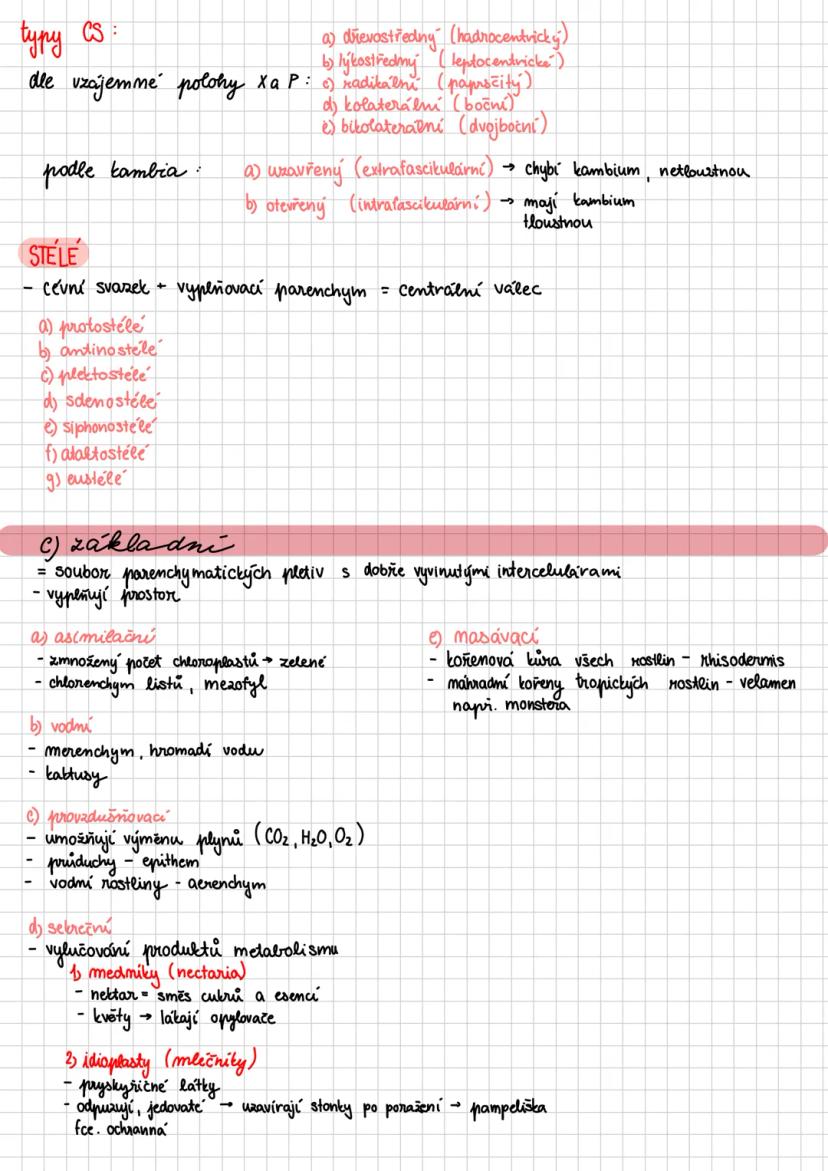 typy CS:
a) dřevostředný (hadrocentrický)
b) lýkostředný (leptocentrické)
dle vzájemné polohy X a P: c) radikální (paprsčitý)
d) kolaterální (boční)
e) bikolaterální (dvojboční)
podle kambia: a) uzavřený (extrafascikulární) → chybí kambium, netloustnou
b) otevřený (intrafascikulární) → mají kambium
tloustnou
STÉLÉ
- cévní svazek + vyplňovací parenchym = centrální válec
a) protostélé
b) antinostélé
c) plektostélé
d) sdenostélé
e) siphonostélé
f) ataktostélé
g) eustélé
c) základní
= soubor parenchymatických pletiv s dobře vyvinutými intercelulárami
- vyplňují prostor
a) asimilační
- zmnožený počet chloroplastů → zelené
- chlorenchym listů, mezofyl
b) vodní
- merenchym, hromadí vodu
- kaktusy
c) provzdušňovací
- umožňují výměnu plynů (CO2, H2O, O2)
- průduchy - epithem
- vodní rostliny - aerenchym
d) sekreční
- vylučování produktů metabolismu
1) medníky (nectaria)
- nektar = směs cukrů a esencí
- květy → lákají opylovače
2) idioplasty (mléčníky)
- pryskyřičné látky
- odpuzují, jedovaté → uzavírají stonky po poražení → pampeliška
fce. ochranná
e) nasávací
- kořenová kůra všech rostlin - rhisodermis
- náhradní kořeny tropických rostlin - velamen
např. monstera